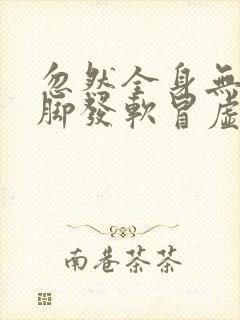 忽然全身無
腳發軟冒虛
南巷茶茶